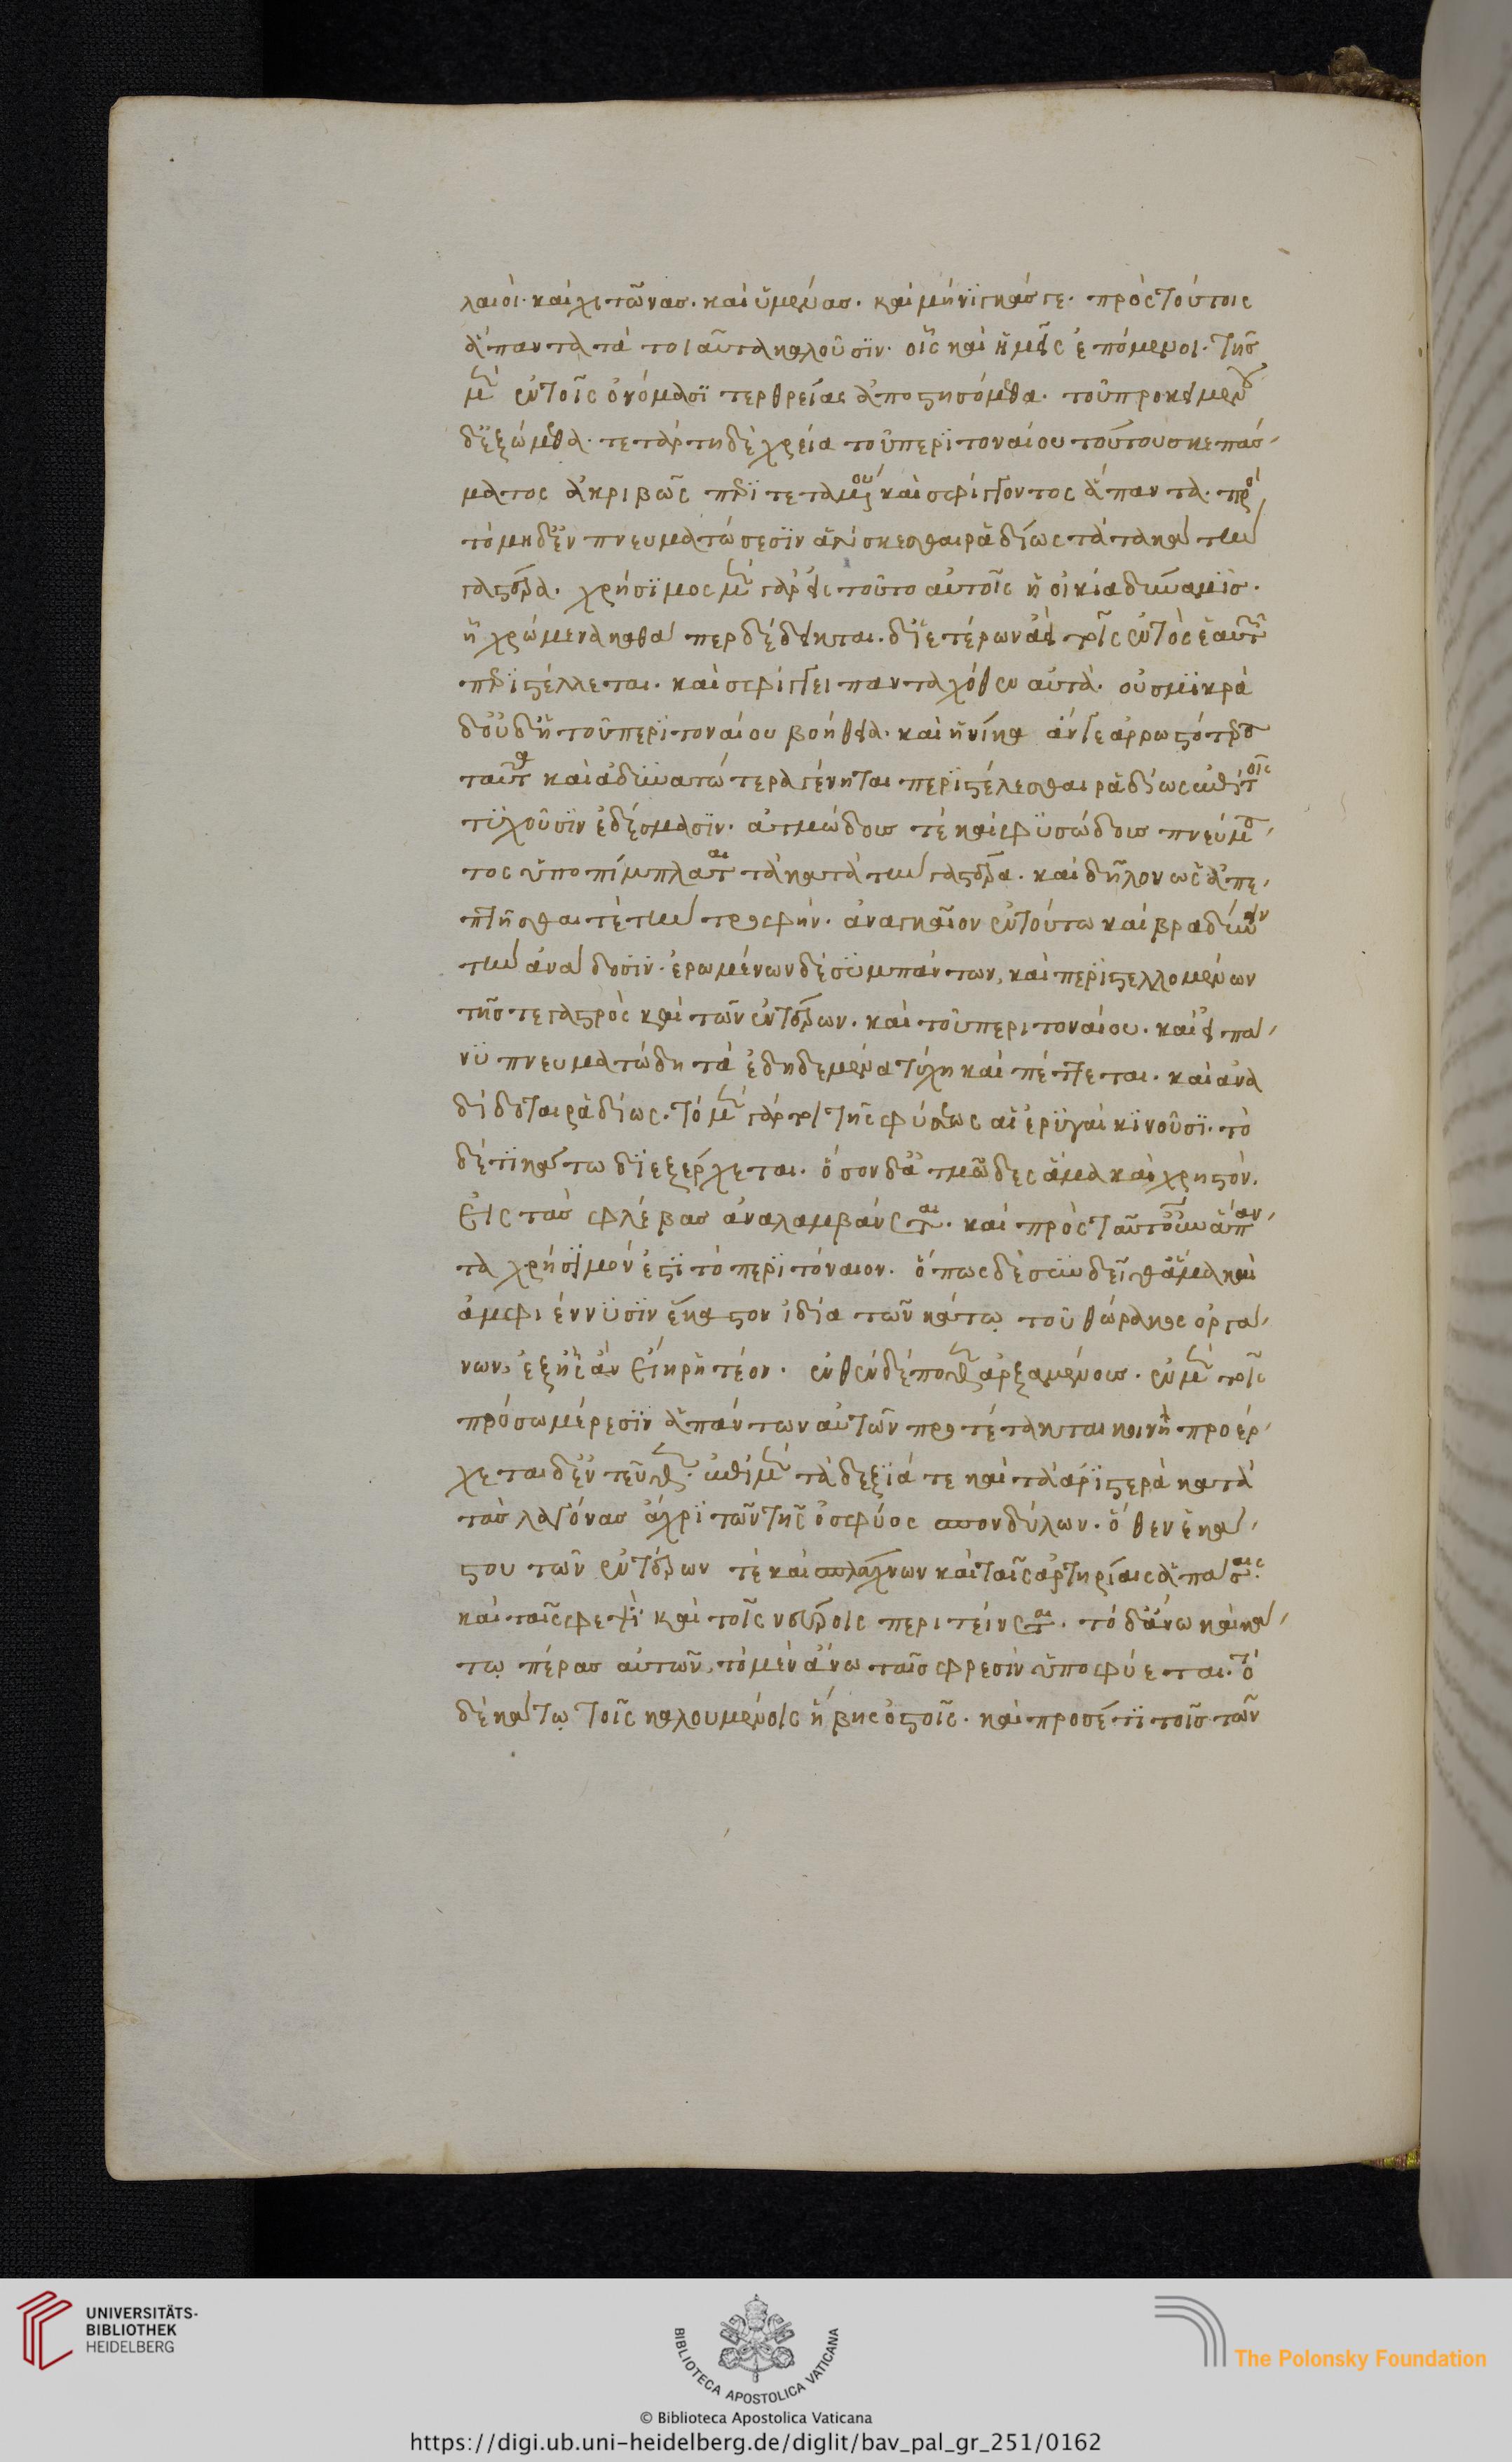 λαιοί. καὶ χιτῶνας. καὶ ὑμένας. καὶ μήνιγγάς γε. πρὸς τούτοις
ἅπαντα τὰ τοιαῦτα καλοῦσϊν. οἷς καὶ ἡμεῖς ἑπόμενοι. τῆς
μὲν ἐν τοῖς ὀνόμασϊ τερθρείας ἀποστησόμεθα. τοῦ προκειμένου
δ' ἑξώμεθα. τετάρτη δὲ χρεία τοῦ περιτοναίου τούτου σκεπάσ-
ματος ἀκριβῶς περιτεταμένου καὶ σφίγγοντος ἅπαντα. πρὸς
τὸ μηδὲν πνευματώσεσϊν ἁλίσκεσθαι ῥαδίως τὰ τα κατὰ τὴν
γαστέρα. χρήσϊμος μὲν γὰρ εἰς τοῦτο αὐτοῖς ἡ οἰκία δύναμϊς.
ᾗ χρώμενα καθάπερ δέδεικται. δϊετέρων ἀεὶ τοῖς ἐντὸς ἑαυτῶν
περιστέλλεται. καὶ σφίγγει πανταχόθεν αὐτά. οὐ σμϊκρὰ
δ' οὐδ' ἡ τοῦ περιτοναίου βοήθεια. καὶ ἡνίκα ἄν γε ἀρρωστότερα
ταῦτα καὶ ἀδϋνατώτερα γένηται περιστέλεσθαι ῥαδίως ἐπὶ τοῖς
τϊχοῦσϊν ἐδέσμασϊν. ἀτμώδους τὲ καὶ φϋσώδους πνεύμα-
τος ὑποπίμπλαται τὰ κατὰ τὴν γαστέρα. καὶ δῆλον ὡς ἀπε-
πτῆσθαι τὲ τὴν τροφήν. ἀναγκαῖον ἐν τούτω καὶ βραδύνειν
τὴν ἀνάδοσϊν. ἐρωμένων δὲ σϋμπάντων, καὶ περιστελλομένων
τῆς τε γαστρὸς καὶ τῶν ἐντέρων. καὶ τοῦ περιτοναίου. καὶ εἰ πά-
νϋ πνευματώδη τὰ ἐδηδεμένα τύχη καὶ πέττεται. καὶ ἀνα
δίδοται ῥαδίως. τὸ μὲν γὰρ τι τῆς φύσεως αἱ ἐρϋγαὶ κϊνοῦσϊ. τὸ
δέ τϊ κάτω δϊεξέρχεται. ὅσον δ' ἀτμῶδες ἅμα καὶ χρηστόν.
εἰς τὰς φλέβας ἀναλαμβάνεται. καὶ πρὸς ταῦτ' οὖν ἅπαν-
τα χρήσϊμόν ἐστϊ τὸ περϊτόναιον. ὅπως δὲ σϋνδεῖ θ' ἅμα καὶ
ἀμφιέννϋσϊν ἕκαστον ἰδία τῶν κάτω τοῦ θώρακος ὀργά-
νων, ἐξῆς ἂν εἴη ῥητέον. ἐνθένδέ ποθεν ἀρξαμένοις. ἐν μὲν τοῖς
πρόσω μέρεσϊν ἁπάντων αὐτῶν προτέτακται κοινῆ προέρ-
χεται δ' ἐντεῦθεν. ἐπὶ μὲν τὰ δεξϊά τε καὶ τὰ ἀρϊστερὰ κατὰ
τὰς λαγόνας ἄχρϊ τῶν τῆς ὀσφύος σπονδύλων. ὅθεν ἑκά-
στου τῶν ἐντέρων τὲ καὶ σπλάγχνων καὶ ταῖς ἀρτηρίαις ἁπάσαις.
καὶ ταῖς φεψὶ καὶ τοῖς νεύροις περιτείνεται. τὸ δ' ἄνω καὶ κά-
τω πέρας αὐτῶν, τὸ μὲν ἄνω ταῖς φρεσὶν ὑποφύεται. τὸ
δὲ κάτω τοῖς καλουμένοις ἥβης ὀστοῖς. καὶ προσέτϊ τοῖς τῶν
UNIVERSITÄTS-
BIBLIOTHEK
HEIDELBERG
BIBLIOTECA APOSTOLICA VATICANA
© Biblioteca Apostolica Vaticana
The Polonsky Foundation
https://digi.ub.uni-heidelberg.de/diglit/bav_pal_gr_251/0162